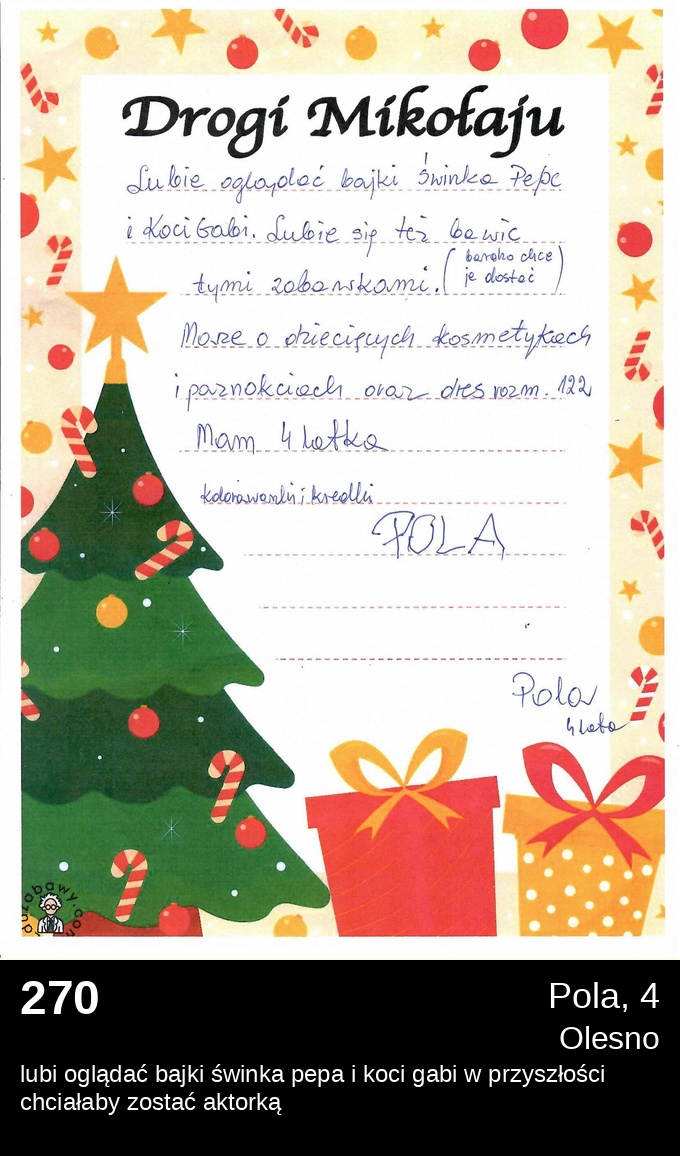 Drogi Mikołaju
Lubie oglądać bajki świnka Pepe
i Koci Gabi. Lubie się też bawic
tymi zabawkami. (bardzo chce
je dostać)
Marze o dziecięcych kosmetykach
i paznokciach oraz dres rozm. 122
Mam 4 latka
kolorowanki i kredki
POLA
Pola
4 lata
270
Pola, 4
Olesno
lubi oglądać bajki świnka pepa i koci gabi w przyszłości
chciałaby zostać aktorką